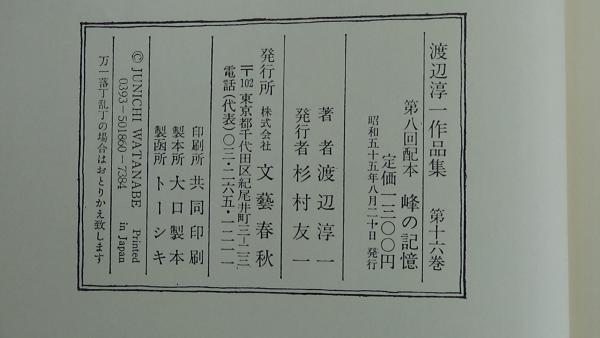 渡辺淳一作品集　第十六巻
第八回配本　峰の記憶
定価一三〇〇円
昭和五十五年八月二十日　発行
著者　渡辺淳一
発行者　杉村友一
発行所　株式会社　文藝春秋
〒102 東京都千代田区紀尾井町三-二三
電話(代表)〇三・二六五・一二一一
印刷所　共同印刷
製本所　大口製本
製函所　トーシキ
© JUNICHI WATANABE　Printed in Japan
0393-501860-7384
万一落丁乱丁の場合はおとりかえ致します